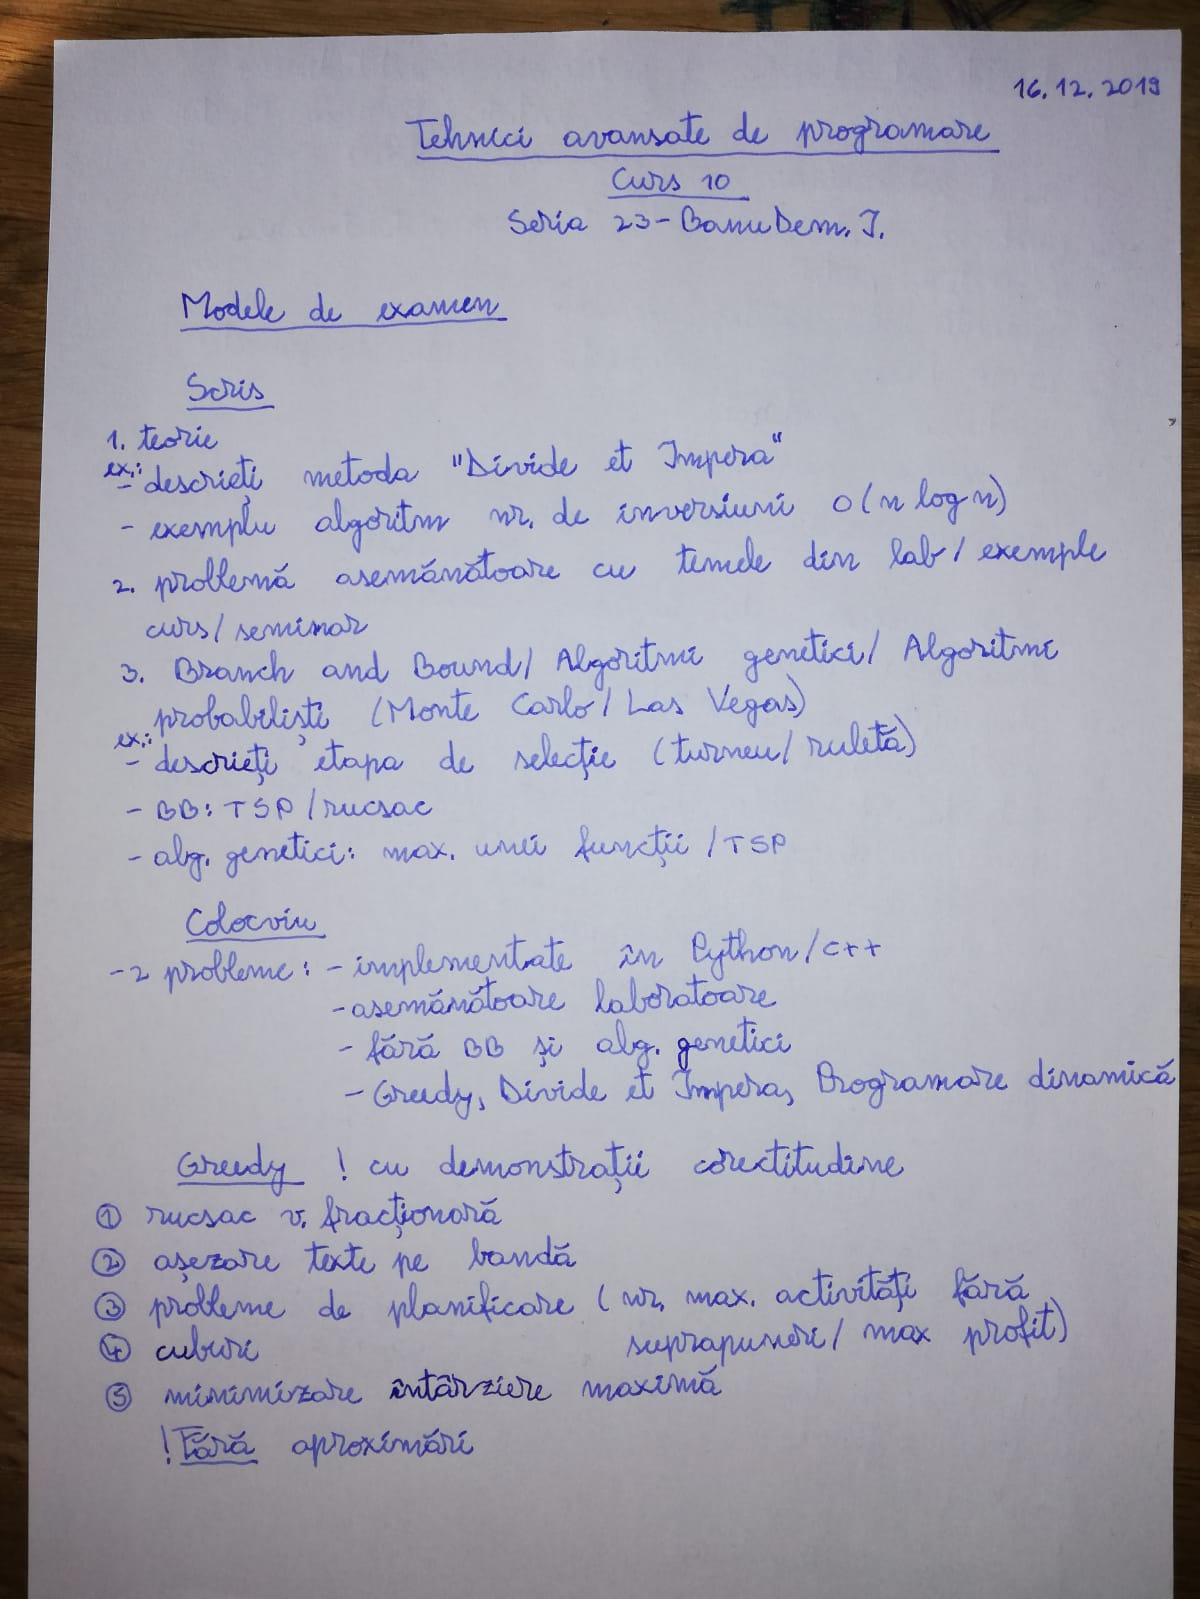 16.12.2019
Tehnici avansate de programare
Curs 10
Seria 23 - Banu Dem. I.
Modele de examen
Scris
1. teorie
ex.:
- descrieți metoda "Divide et Impera"
- exemplu algoritm nr. de inversiuni O(n log n)
2. problemă asemănătoare cu temele din lab / exemple
curs / seminar
3. Branch and Bound / Algoritmi genetici / Algoritmi
probabiliști (Monte Carlo / Las Vegas)
ex.:
- descrieți etapa de selecție (turneu / ruletă)
- BB: TSP / rucsac
- alg. genetici: max. unei funcții / TSP
Colocviu
- 2 probleme: - implementate în Python / C++
- asemănătoare laboratoare
- fără BB și alg. genetici
- Greedy, Divide et Impera, Programare dinamică
Greedy ! cu demonstrații corectitudine
① rucsac v. fracționară
② așezare texte pe bandă
③ probleme de planificare (nr. max. activități fără
suprapuneri / max profit)
④ cuburi
⑤ minimizare întârziere maximă
! Fără aproximări